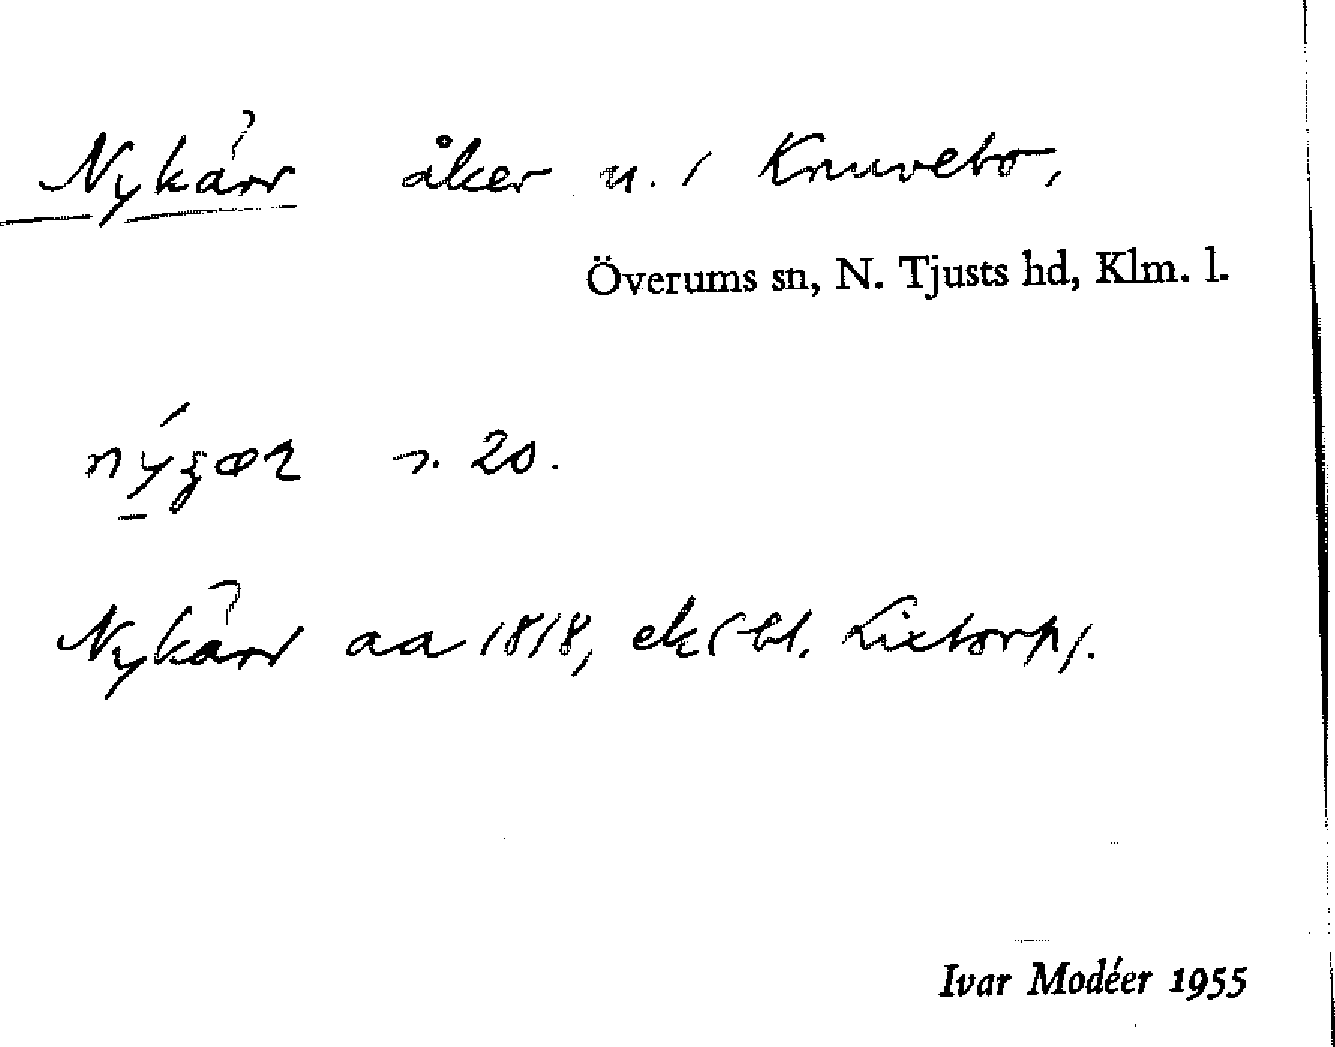 Nykärr åker n. 1 Knuvebo,
Överums sn, N. Tjusts hd, Klm. l.
s. 20.
Nykärr aa 1818, ek (bl. Lixtorp).
Ivar Modéer 1955